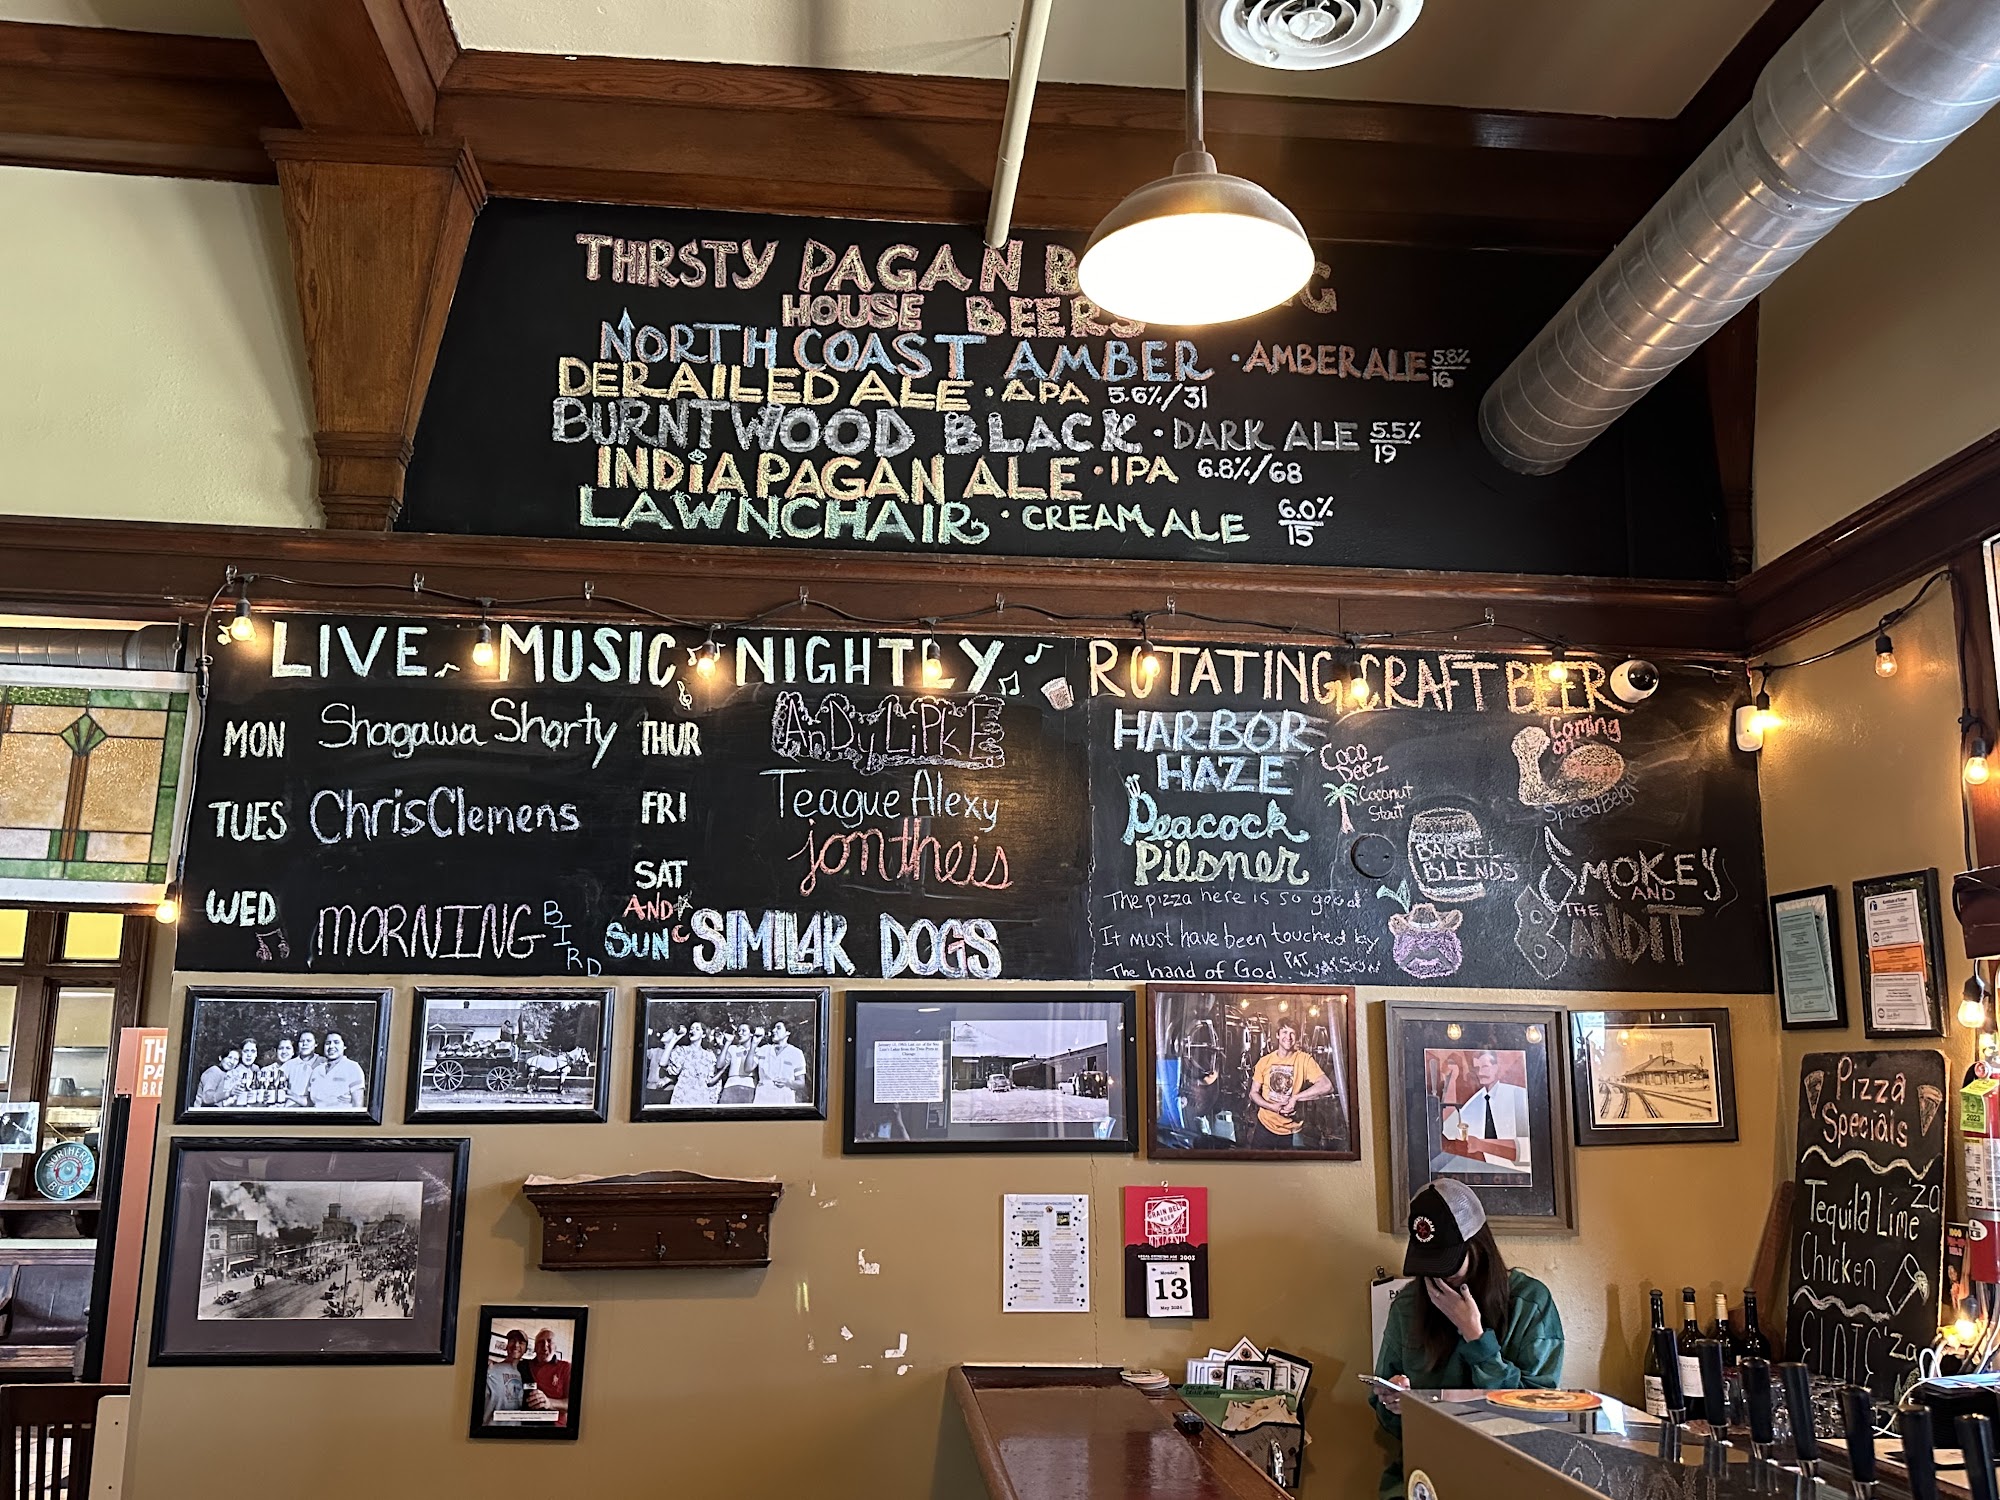 THIRSTY PAGAN
HOUSE BEERS
NORTH COAST AMBER · AMBER ALE 5.8% 16
DERAILED ALE · APA 5.6%/31
BURNTWOOD BLACK · DARK ALE 5.5% 19
INDIA PAGAN ALE · IPA 6.8%/68
LAWNCHAIR · CREAM ALE 6.0% 15
LIVE MUSIC NIGHTLY
MON Shagawa Shorty
TUES Chris Clemens
WED MORNING BIRD
THUR AnDy LiPkE
FRI Teague Alexy
jontheis
SAT
AND
SUN SIMILAR DOGS
ROTATING CRAFT BEER
HARBOR
HAZE
Peacock
Pilsner
The pizza here is so good
It must have been touched by
The hand of God.. PAT WATSON
Coco
Deez
Coconut
Stout
BARREL
BLENDS
Coming
on
Spiced Belg
SMOKEY
AND
THE
BANDIT
Pizza
Specials
Tequila Lime 'za
Chicken
'za
NORTHERN
BEER
TH
PA
BR
GRAIN BELT
BEER
2003
Monday
13
May 2024
2023